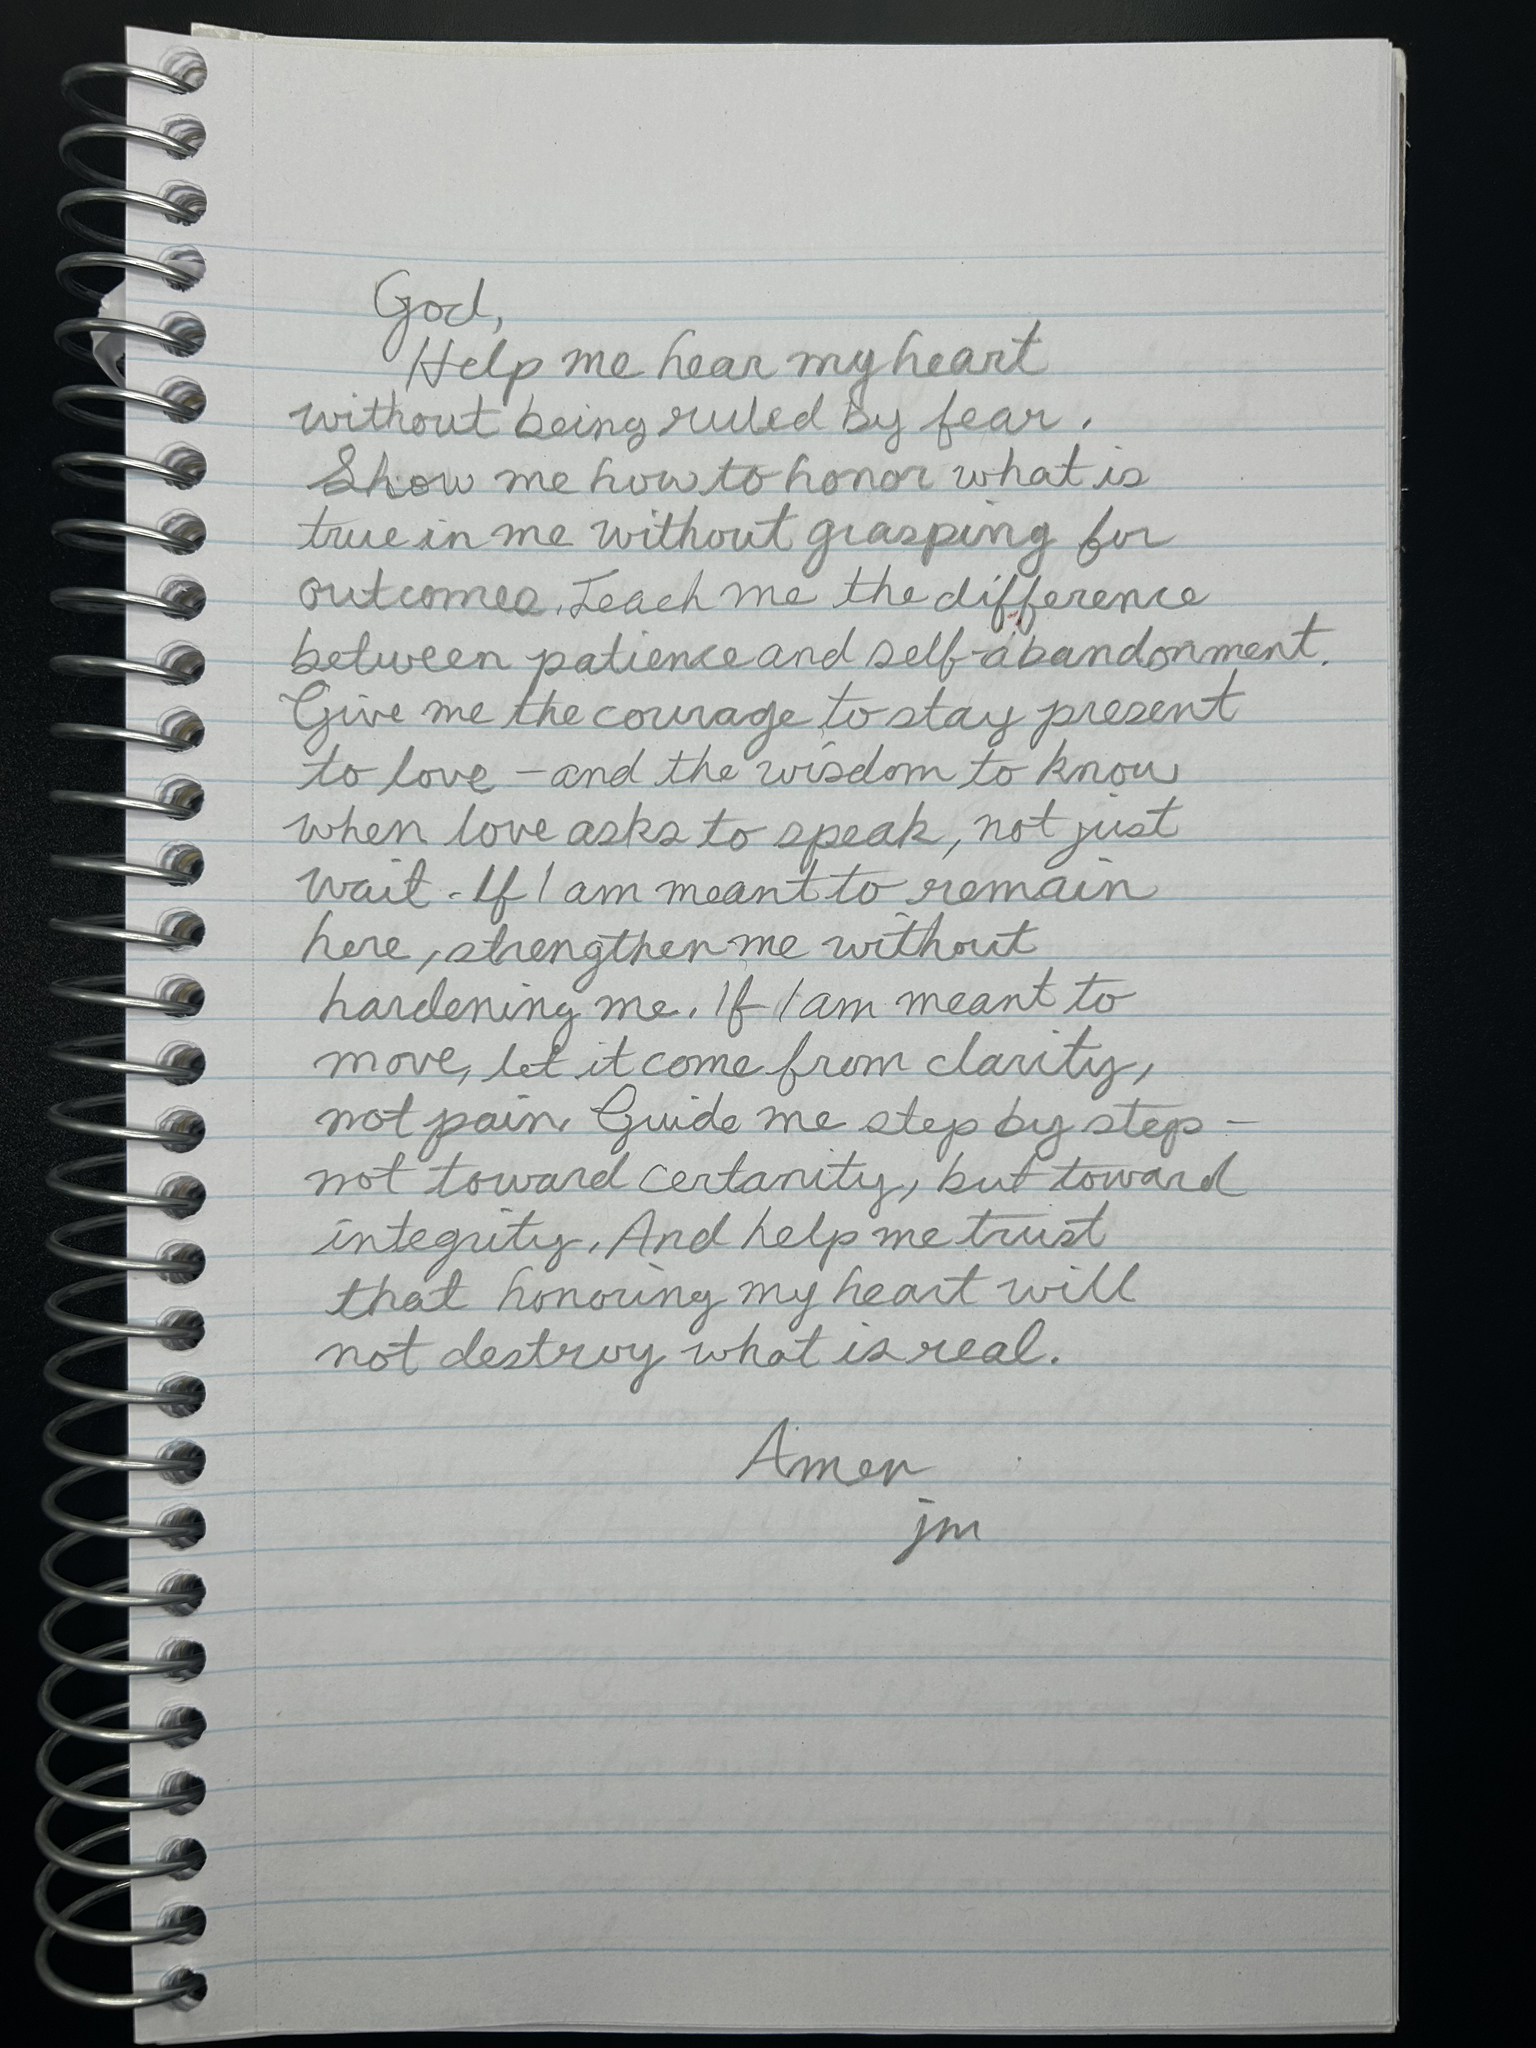 God,
Help me hear my heart
without being ruled by fear.
Show me how to honor what is
true in me without grasping for
outcomes. Teach me the difference
between patience and self-abandonment.
Give me the courage to stay present
to love - and the wisdom to know
when love asks to speak, not just
wait. If I am meant to remain
here, strengthen me without
hardening me. If I am meant to
move, let it come from clarity,
not pain. Guide me step by step -
not toward certanity, but toward
integrity. And help me trust
that honoring my heart will
not destroy what is real.
Amen
jm